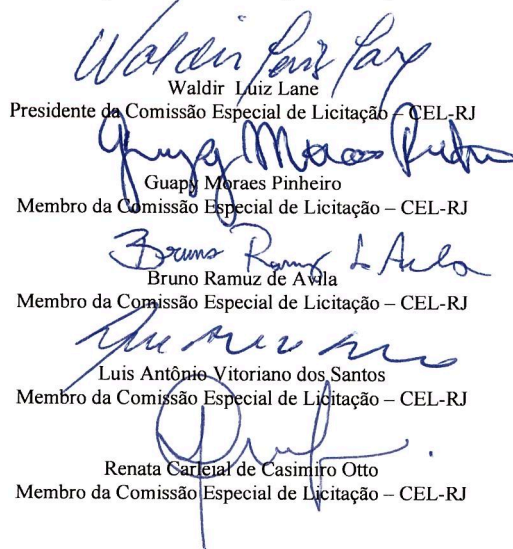 Waldir Luiz Lane
Presidente da Comissão Especial de Licitação – CEL-RJ
Guapy Moraes Pinheiro
Membro da Comissão Especial de Licitação – CEL-RJ
Bruno Ramuz de Avila
Bruno Ramuz de Avila
Membro da Comissão Especial de Licitação – CEL-RJ
Luis Antônio Vitoriano dos Santos
Membro da Comissão Especial de Licitação – CEL-RJ
Renata Carlejal de Casimiro Otto
Membro da Comissão Especial de Licitação – CEL-RJ